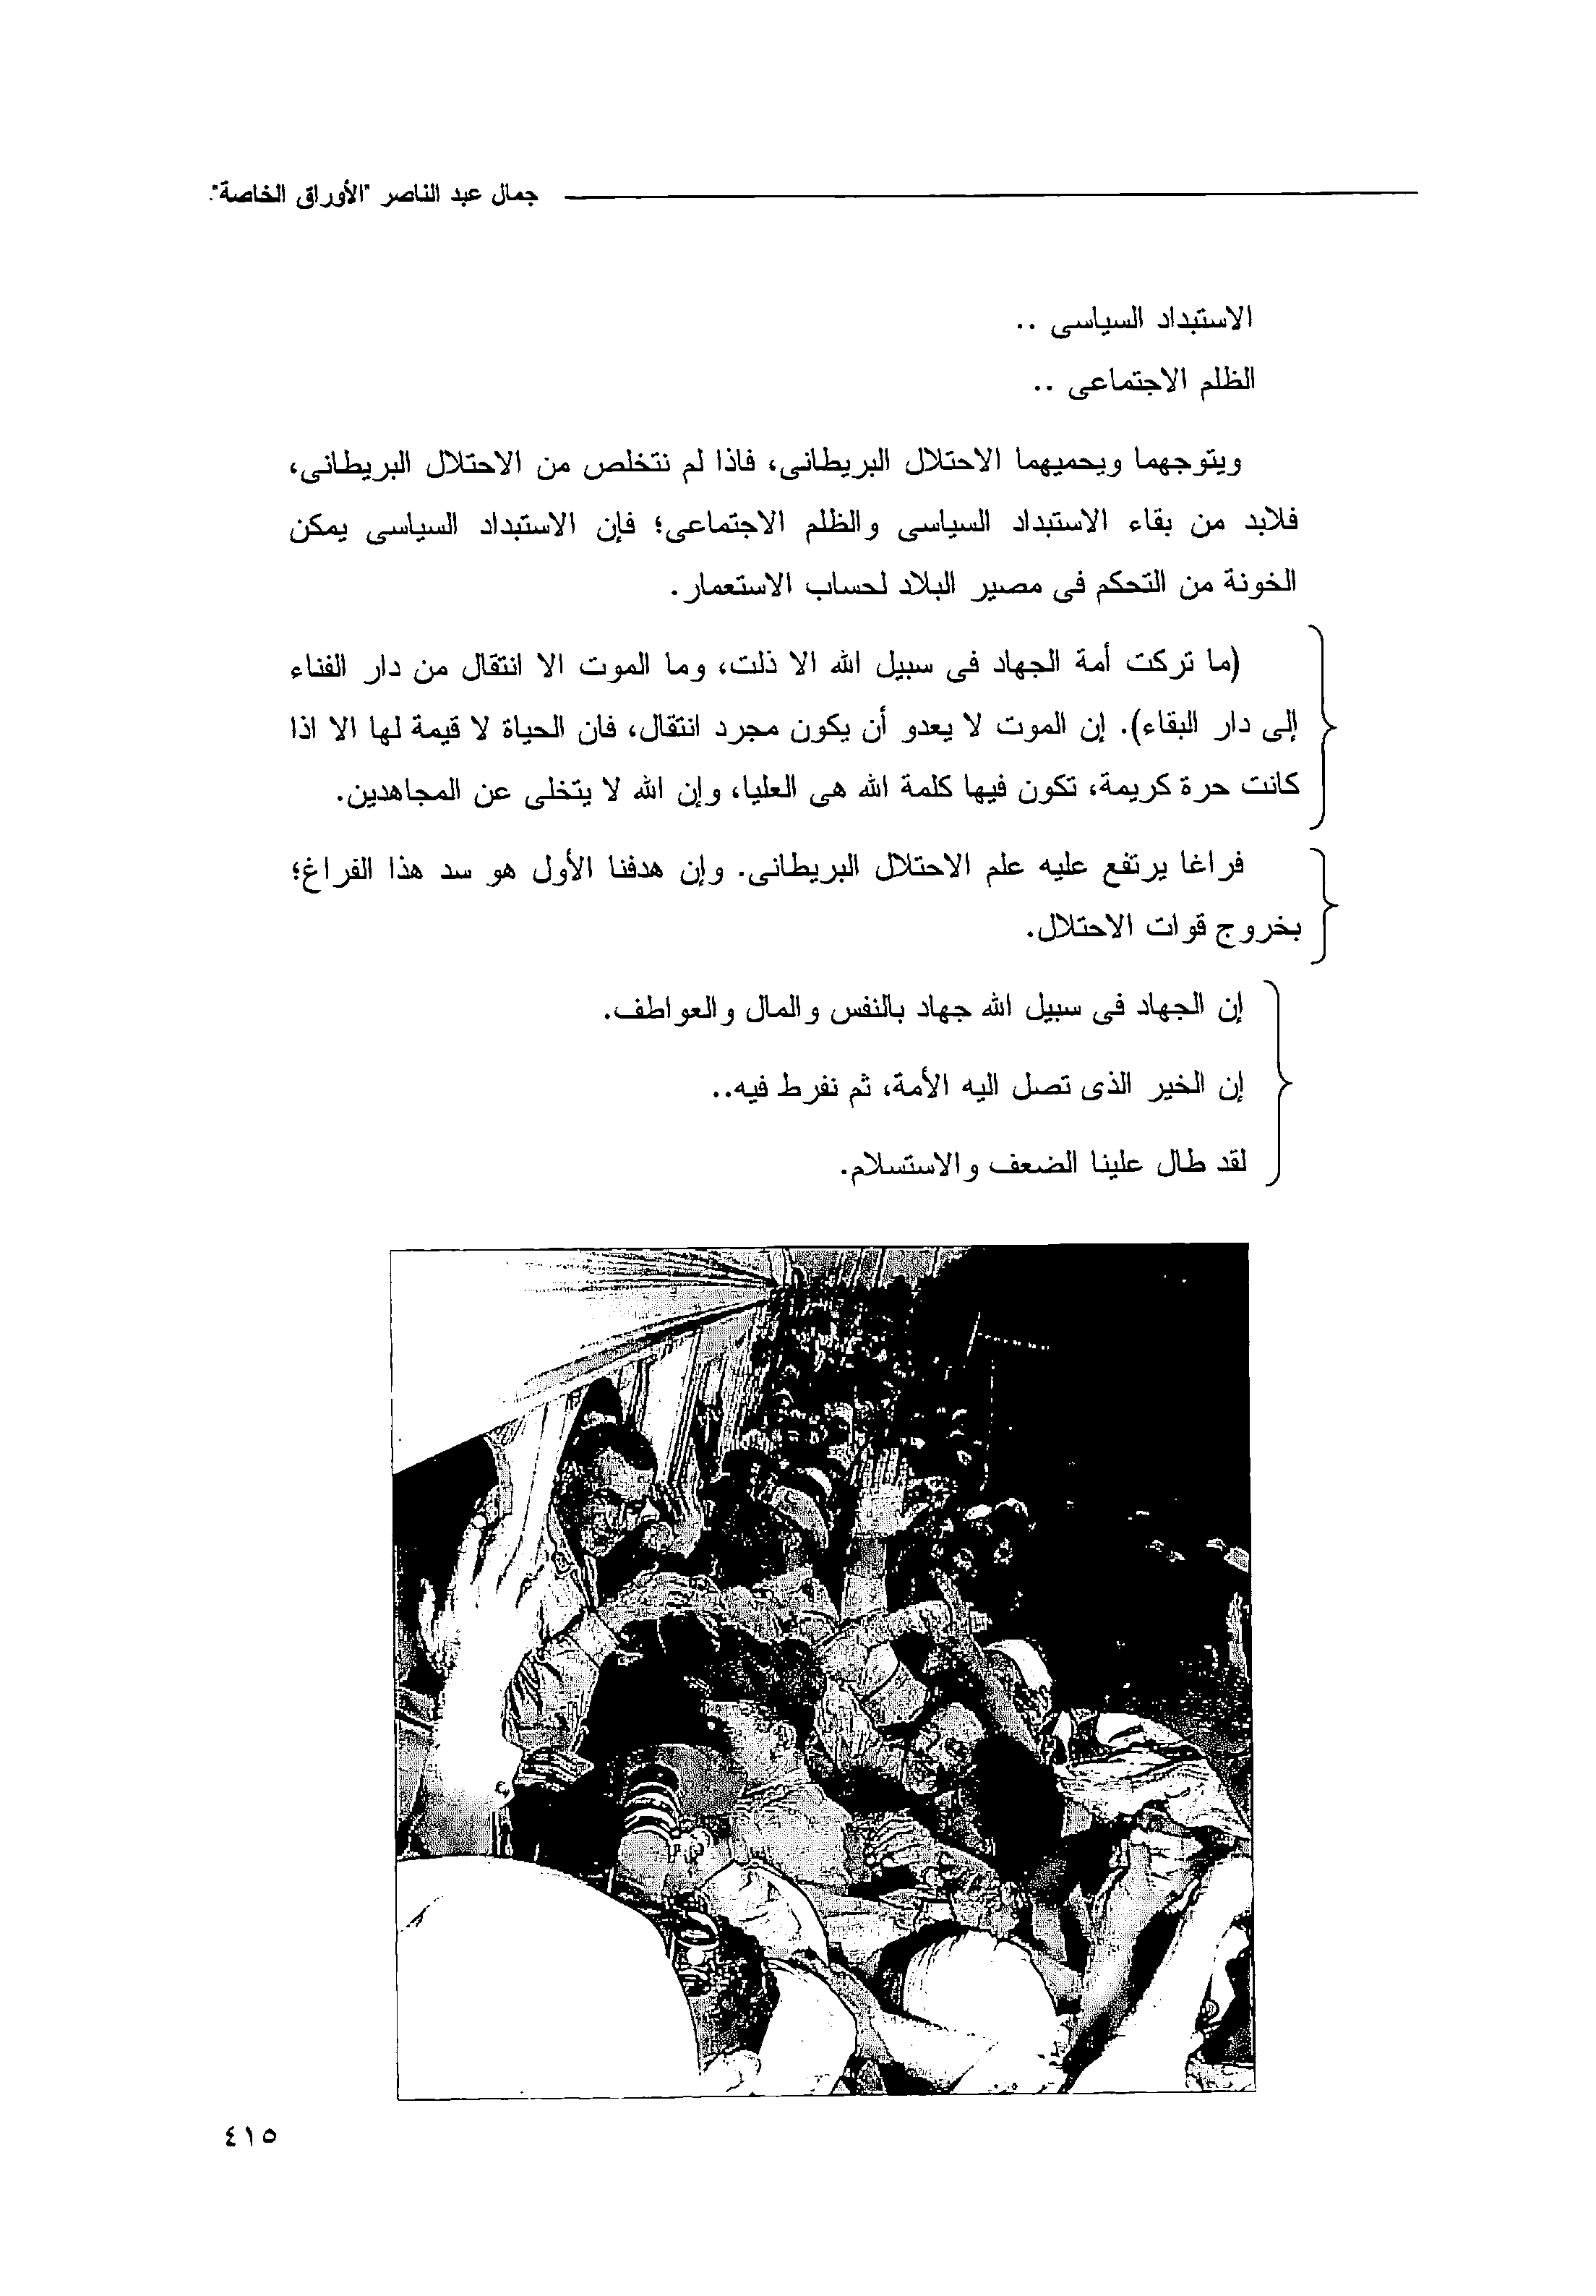 جمال عبد الناصر "الأوراق الخاصة".
الاستبداد السياسى ..
الظلم الاجتماعى ..
ويتوجهما ويحميهما الاحتلال البريطانى، فاذا لم نتخلص من الاحتلال البريطانى،
فلابد من بقاء الاستبداد السياسى والظلم الاجتماعى؛ فإن الاستبداد السياسى يمكن
الخونة من التحكم فى مصير البلاد لحساب الاستعمار.
(ما تركت أمة الجهاد فى سبيل الله الا ذلت، وما الموت الا انتقال من دار الفناء
إلى دار البقاء). إن الموت لا يعدو أن يكون مجرد انتقال، فان الحياة لا قيمة لها الا اذا
كانت حرة كريمة، تكون فيها كلمة الله هى العليا، وإن الله لا يتخلى عن المجاهدين.
فراغا يرتفع عليه علم الاحتلال البريطانى. وإن هدفنا الأول هو سد هذا الفراغ؛
بخروج قوات الاحتلال.
إن الجهاد فى سبيل الله جهاد بالنفس والمال والعواطف.
إن الخير الذى تصل اليه الأمة، ثم نفرط فيه..
لقد طال علينا الضعف والاستسلام.
٤١٥